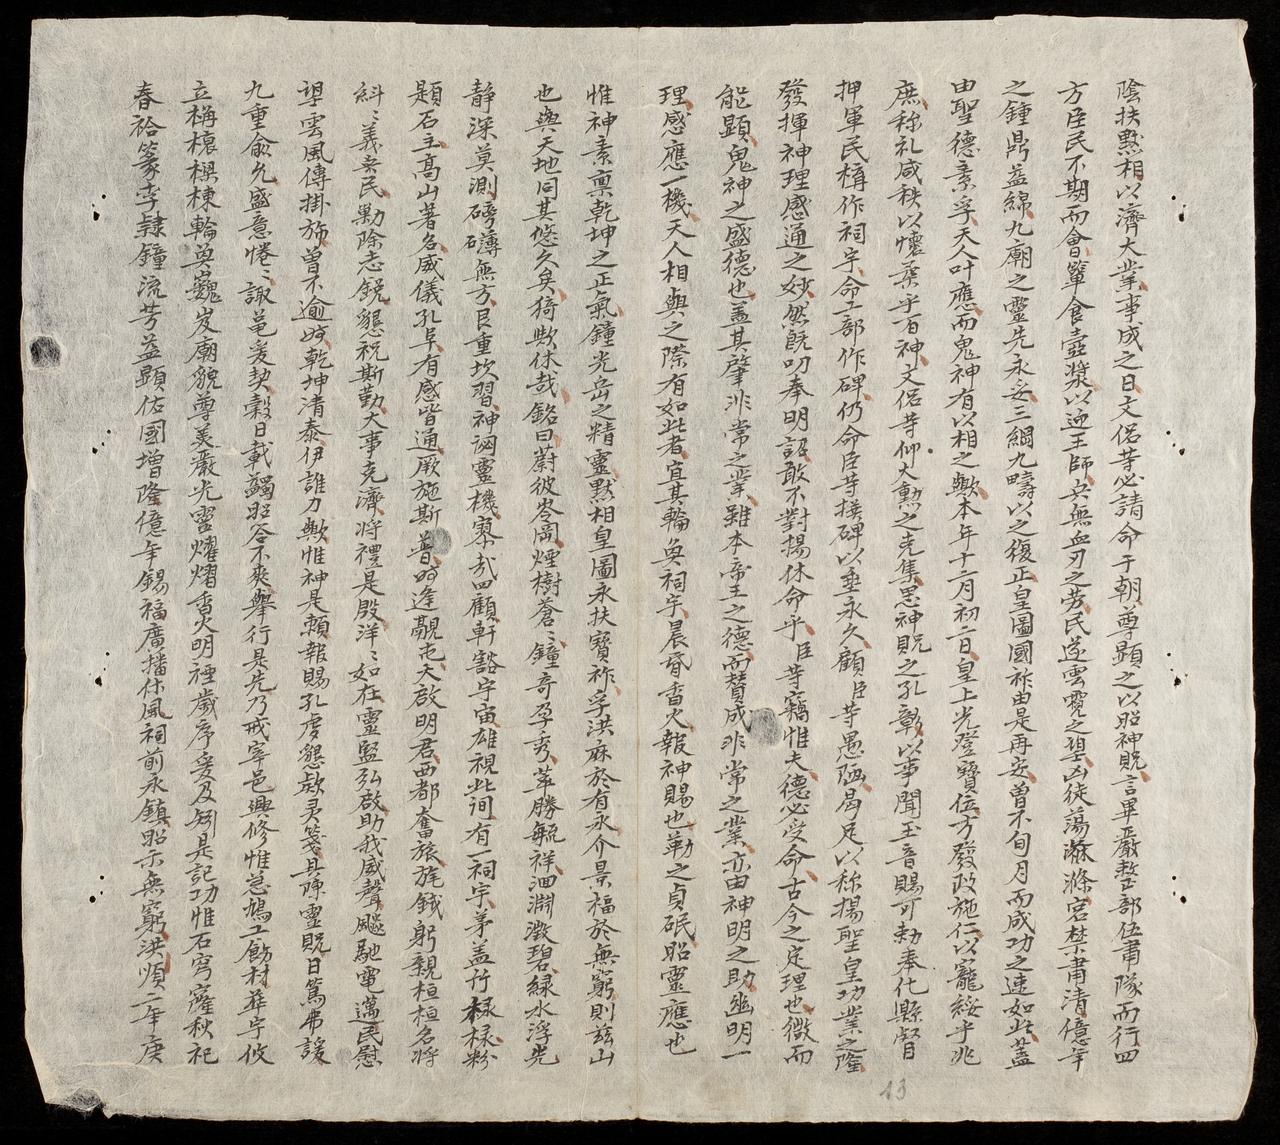 陰扶黙相以濟大業事成之日文侶䓁必請命于朝尊顯之以昭神貺言畢嚴整部伍肅隊而行四
方臣民不期而會簞食壺漿以迎王師兵無血刃之勞民遂雲霓之望凶徒蕩滌滌宮禁肅清億年
之鍾鼎益綿九廟之靈先永妥三綱九疇以之復正皇圖國祚由是再安曽不旬月而成功之速如此蓋
由聖德素孚天人叶應而鬼神有以相之歟本年十二月初二日皇上光登寶位方發政施仁以寵綏乎兆
庶称礼咸秩以懷柔乎百神文侶䓁仰大勳之克集思神貺之孔彰以事聞玉音賜可勅奉化縣督
押軍民構作祠宇命工部作碑仍命臣䓁撰碑以垂永久顧臣䓁愚陋曷足以称揚聖皇功業之隆
發揮神理感通之妙然旣叨奉明詔敢不對揚休命乎臣䓁竊惟夫德必受命古今之定理也微而
能顯鬼神之盛德也蓋其肇非常之業雖本帝王之德而賛成非常之業亦由神明之助幽明一
理感應一機天人相與之際有如此者宜其輪奐祠宇晨昏香火報神賜也勒之貞珉昭靈應也
惟神素禀乾坤之正氣鐘光岳之精靈黙相皇圖永扶寶祚孚洪庥於有永介景福於無窮則玆山
也與天地同其悠久矣猗歟休哉銘曰蔚彼岑岡煙樹蒼〻鐘奇孕秀萃勝毓祥洄淵澂碧緑水浮光
静深莫測磅礴無方艮重坎習神閟靈機寥㢤四顧軒豁宇宙雄視此间有一祠宇茅盖竹椽椽粉
題石主髙山著名威儀孔阜有感皆通厥施斯普时逢覯屯天啟明君西都奮旅旄鉞躬親桓桓名将
糾〻義兵民勷除志銳懇祝斯勤大事克濟将禮是殷洋〻如在靈监弘啟助我威聲颷馳電邁民慰
望雲風傳掛斾曽不逾时乾坤清泰伊誰力歟惟神是頼報賜孔虔懇款灵箋具陳靈貺日篤弗諼
九重俞允盛意惓〻諏黾爰契榖日載蠲昭答不爽舉行是先乃戒宰邑興修惟急鳩工飭材葺宇攸
立梅榱榠棟輪奐巍岌廟貌尊美嚴光雷燿熠香火明禋歲序爰及刻是記功惟石穹窿秋祀
春祫篆李隸鐘流芳益顯佑國增隆億年錫福廣播休風祠前永鎮昭示無窮洪順二年庚
13